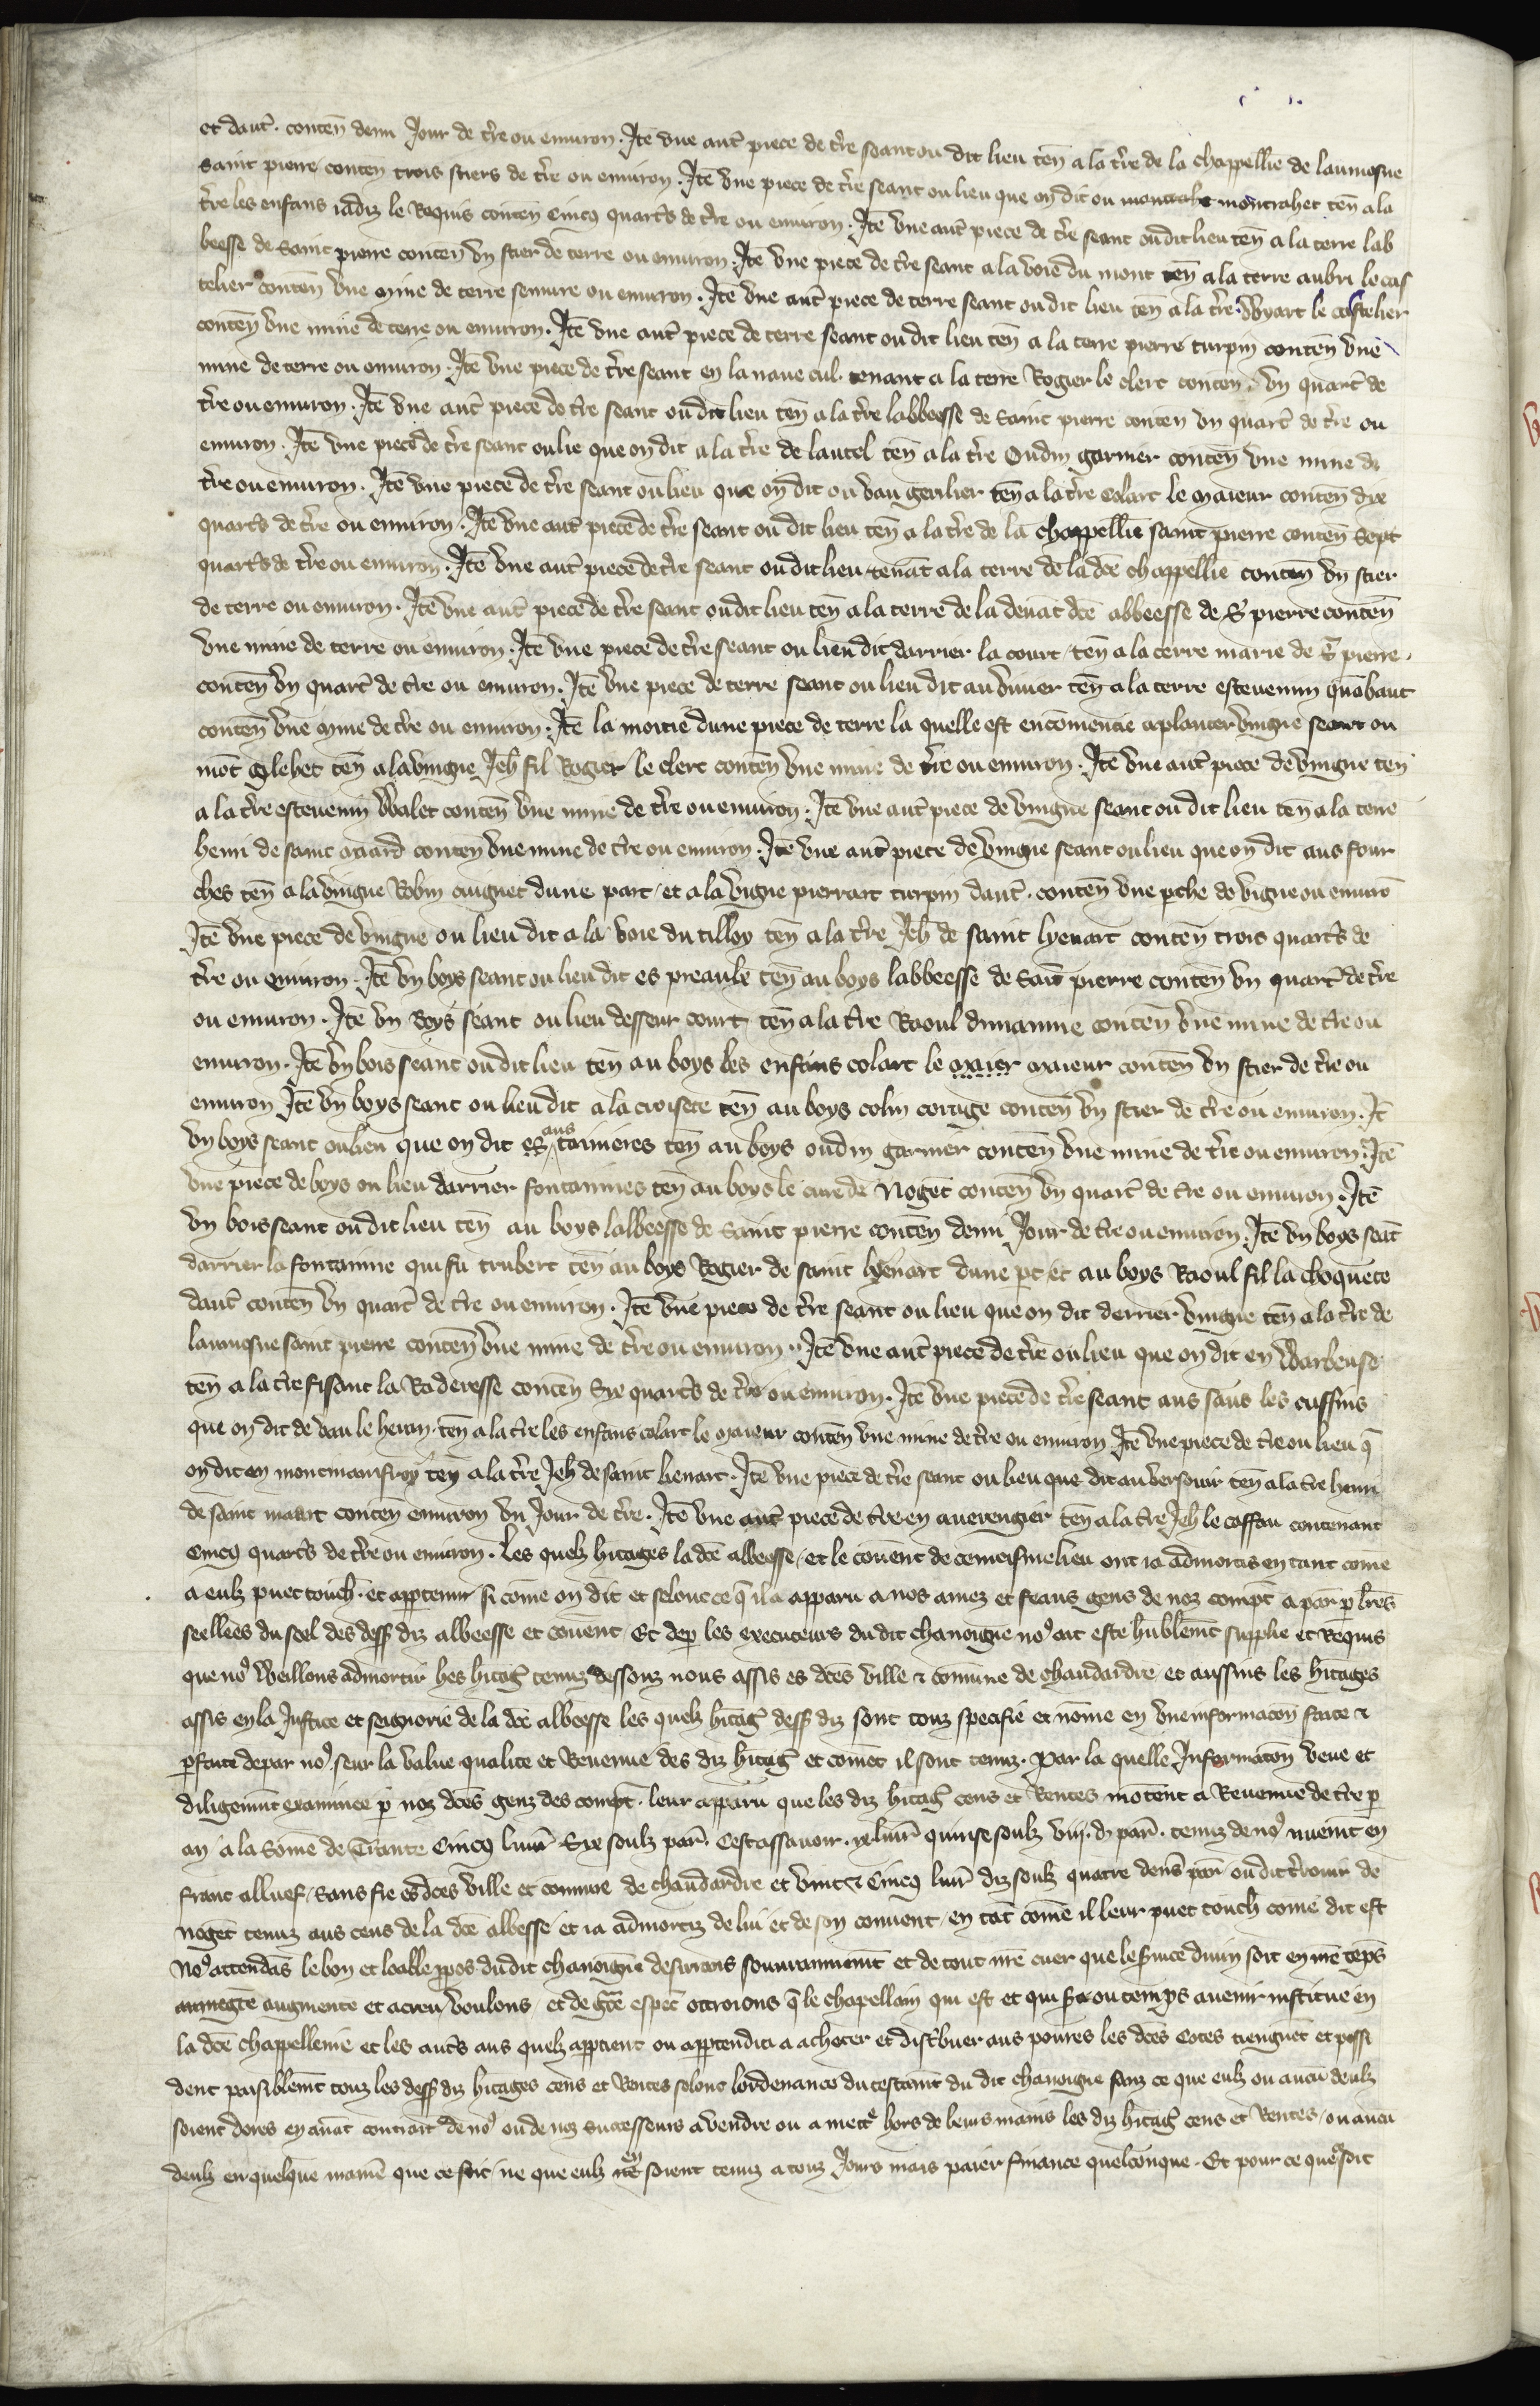 et daut̃. conteñ demi Jour de t̃re ou enuiron. Itẽ vne aut̃ piece de t̃re seant ou dit lieu teñ a la t̃re de la chappellie de laumosne
saint pierre conteñ trois stiers de t̃re ou enuiron. Itẽ vne piece de t̃re seant ou lieu que on dit ou montrahet teñ a la
t̃re les enfans iadiz le Requis conteñ cincq quart̃s de t̃re ou enuiron. Itẽ vne aut̃ piece de t̃re seant ou dit lieu teñ a la terre lab
beesse de saint pierre conteñ vn stier de terre ou enuiron. Itẽ vne piece de t̃re seant a la voie du mont teñ a la terre aubri le cas
telier conteñ vne mine de terre semure ou enuiron. Itẽ vne aut̃ piece de terre seant ou dit lieu teñ a la t̃re Wyart le castelier
conteñ vne mine de terre ou enuiron. Itẽ vne aut̃ piece de terre seant ou dit lieu teñ a la terre pierre turpin conteñ vne
mine de terre ou enuiron. Itẽ vne piece de t̃re seant en la naue cul. tenant a la terre Rogier le clerc conteñ. vn quart̃ de
t̃re ou enuiron. Itẽ vne aut̃ piece de t̃re seant ou dit lieu teñ a la t̃re labbeesse de saint pierre conteñ vn quart̃ de t̃re ou
enuiron. Itẽ vne piece de t̃re seant ou lie que on dit a la t̃re de lautel teñ a la t̃re Oudin garnier conteñ vne mine de
t̃re ou enuiron. Itẽ vne piece de t̃re seant ou lieu que on dit ou vau gerilier teñ a la t̃re Colart le maieur conteñ dix
quart̃s de t̃re ou enuiron. Itẽ vne aut̃ piece de t̃re seant ou dit lieu teñ a la t̃re de la chappellie saint pierre conteñ sept
quart̃s de t̃re ou enuiron. Itẽ vne aut̃ piece de t̃re seant ou dit lieu tenãt a la terre de la dc̃e chappellie conteñ vn stier
de terre ou enuiron. Itẽ vne aut̃ piece de t̃re seant ou dit lieu teñ a la terre de la deuãt dc̃e abbeesse de S̃ pierre conteñ
vne mine de terre ou enuiron. Itẽ vne piece de t̃re seant ou lieu dit darrier la court teñ a la terre marie de S̃ pierre.
conteñ vn quart̃ de t̃re ou enuiron. Itẽ vne piece de terre seant ou lieu dit au viuier teñ a la terre estevenin quãbaut
conteñ vne mine de t̃re ou enuiron. Itẽ la moitie dune piece de terre la quelle est encõmencie a planter vingne seant ou
mõt Glehet teñ a la vingne Jeh̃ fil Rogier le clerc conteñ vne mine de t̃re ou enuiron. Itẽ vne aut̃ piece de vingne teñ
a la t̃re estevenin Walet conteñ vne mine de t̃re ou enuiron. Itẽ vne aut̃ piece de vingne seant ou dit lieu teñ a la terre
henri de saint mard conteñ vne mine de t̃re ou enuiron. Itẽ vne aut̃ piece de vingne seant ou lieu que on dit aus four
ches teñ a la vingne Robin cuignet dune part et a la vigne pierrart turpin daut̃. conteñ vne pche de vigne ou enuirõ
Itẽ vne piece de vingne ou lieu dit a la voie du tilloy teñ a la t̃re Jeh̃ de saint lyenart conteñ trois quart̃s de
t̃re ou enuiron. Itẽ vn boys seant ou lieu dit es preaulx teñ au boys labbeesse de Saĩt pierre conteñ vn quart̃ de t̃re
ou enuiron. Itẽ vn Boys seant ou lieu desseur court teñ a la t̃re Raoul dimanine conteñ vne mine de t̃re ou
enuiron. Itẽ vn bois seant ou dit lieu teñ au boys les enfans colart le maier maieur conteñ vn stier de t̃re ou
enuiron Itẽ vn boys seant ou lieu dit a la croisete teñ au boys colin corrige conteñ vn stier de t̃re ou enuiron. It̃
vn boys seant ou lieu que on dit es aus tainieres teñ au boys oudin garnier conteñ vne mine de t̃re ou enuiron. Itẽ
vne piece de boys ou lieu darrier fontainnes teñ au boys le cure de Nogẽt conteñ vn quart̃ de t̃re ou enuiron. Itẽ
vn bois seant ou dit lieu teñ au boys labbeesse de Saint pierre conteñ demi Jour de t̃re ou enuiron. Itẽ vn boys seãt
darrier la fontainne qui fu trubert teñ au boys Rogier de saint lyenart dune pt et au boys Raoul fil la choquete
daut̃ conteñ vn quart̃ de t̃re ou enuiron. Itẽ vne piece de t̃re seant ou lieu que on dit derrier vingne teñ a la t̃re de
laumosne saint pierre conteñ vne mine de t̃re ou enuiron. Itẽ vne aut̃ piece de t̃re ou lieu que on dit en Warbeuse
teñ a la t̃re fisant la Raderesse conteñ Six quart̃s de t̃re ou enuiron. Itẽ vne piece de t̃re seant aus saus les cuffins
que on dit de vau le heurn. teñ a la t̃re les enfans colart le maieur conteñ vne mine de t̃re ou enuiron Itẽ vne piece de t̃re ou lieu q̃
on dit en montmainfroy teñ a la t̃re Jeh̃ de saint lienart. Itẽ vne piece de t̃re seant ou lieu que dit au versouir teñ a la t̃re henri
de saint maart conteñ enuiron vn Jour de t̃re. Itẽ vne aut̃ piece de t̃re en auerengier teñ a la t̃re Jeh̃ le coffau contenant
cincq quart̃s de t̃re ou enuiron. Les quelz hitages la dc̃e abbeesse et le couent de ce meismelieu ont ia admortis en tant come
a eulz puet touch̃. et apptenir si cõme on dit et selonc ce q̃ il a apparu a nos amez et feaus gens de noz compt̃ a par p̱ lr̃es
seellees du seel des dess̃ diz abbeesse et couent. Et dep̱ les executeurs du dit chanoigne no⁹ ait este hũblem̃t supplie et Requis
que no⁹ Weillons admortir hes hitag̃ tenuz dessouz nous assis es dc̃es ville ⁊ cõmune de chaudardre et aussins les hitages
assis en la Justice et seignorie de la dc̃e abbeesse les quelz hitag̃ dess̃ diz sont touz specifie et nõme en vne informacõn faite ⁊
p̱faite depar no⁹. seur la value qualite et Reuenue des diz hitag̃ et cõmẽt il sont tenuz. Par la quelle Informatõn veue et
diligem̃nt examinee p̱ noz dc̃es genz des compt̃. leur apparu que les diz hitag̃ cens et Rentes mõtent a Reuenue de t̃re p̱
an a la Sõme de Trante Cincq liur̃ Six soulz par̃. Cest assauoir. ix liur̃ quinse soulz viij. d̃ par̃. tenuz de no⁹ nuem̃t en
franc alluef sans fie es dc̃es ville et cõmune de chaudardre et vint ⁊ Cincq liur̃ diz soulz quatre den̄s par̃ ou dit t̃rouir de
nogẽt tenuz aus cens de la dc̃e abbesse et ia admortiz de lui et de son couuent en tãt cõme il leur puet touch̃ come dit est
No⁹ attendãs le bon et loable p̱pos du dit chanoigne desirrans souurainnem̃t et de tout nr̃e cuer que le s̃uice diuin soit en nr̃e tẽps
augmente et acreu Voulons et de gr̃ce espec̃ ottroions q̃ le chapellain qui est et qui s̃a ou temps auenir institue en
la dc̃e chappellenie et les aut̃s aus quelz apptient ou apptendra a acheter et dist̃buer aus poures les dc̃es cotes tiengnẽt et possi
dent paisiblem̃t touz les dess̃ diz hitages cens et Rentes selonc lordenance du testam̃t du dit chanoigne sanz ce que eulz ou aucũ deulz
soient dores en auãt contraĩt de no⁹ ou de noz successeurs a vendre ou a mett̃e hors de leurs mains les diz hitag̃ cens et Rentes ou aucũ
deulz en quelque maniẽ que ce soit ne que eulz en soient tenuz a touz Jours mais paier finance quelconque. Et pour ce que soit